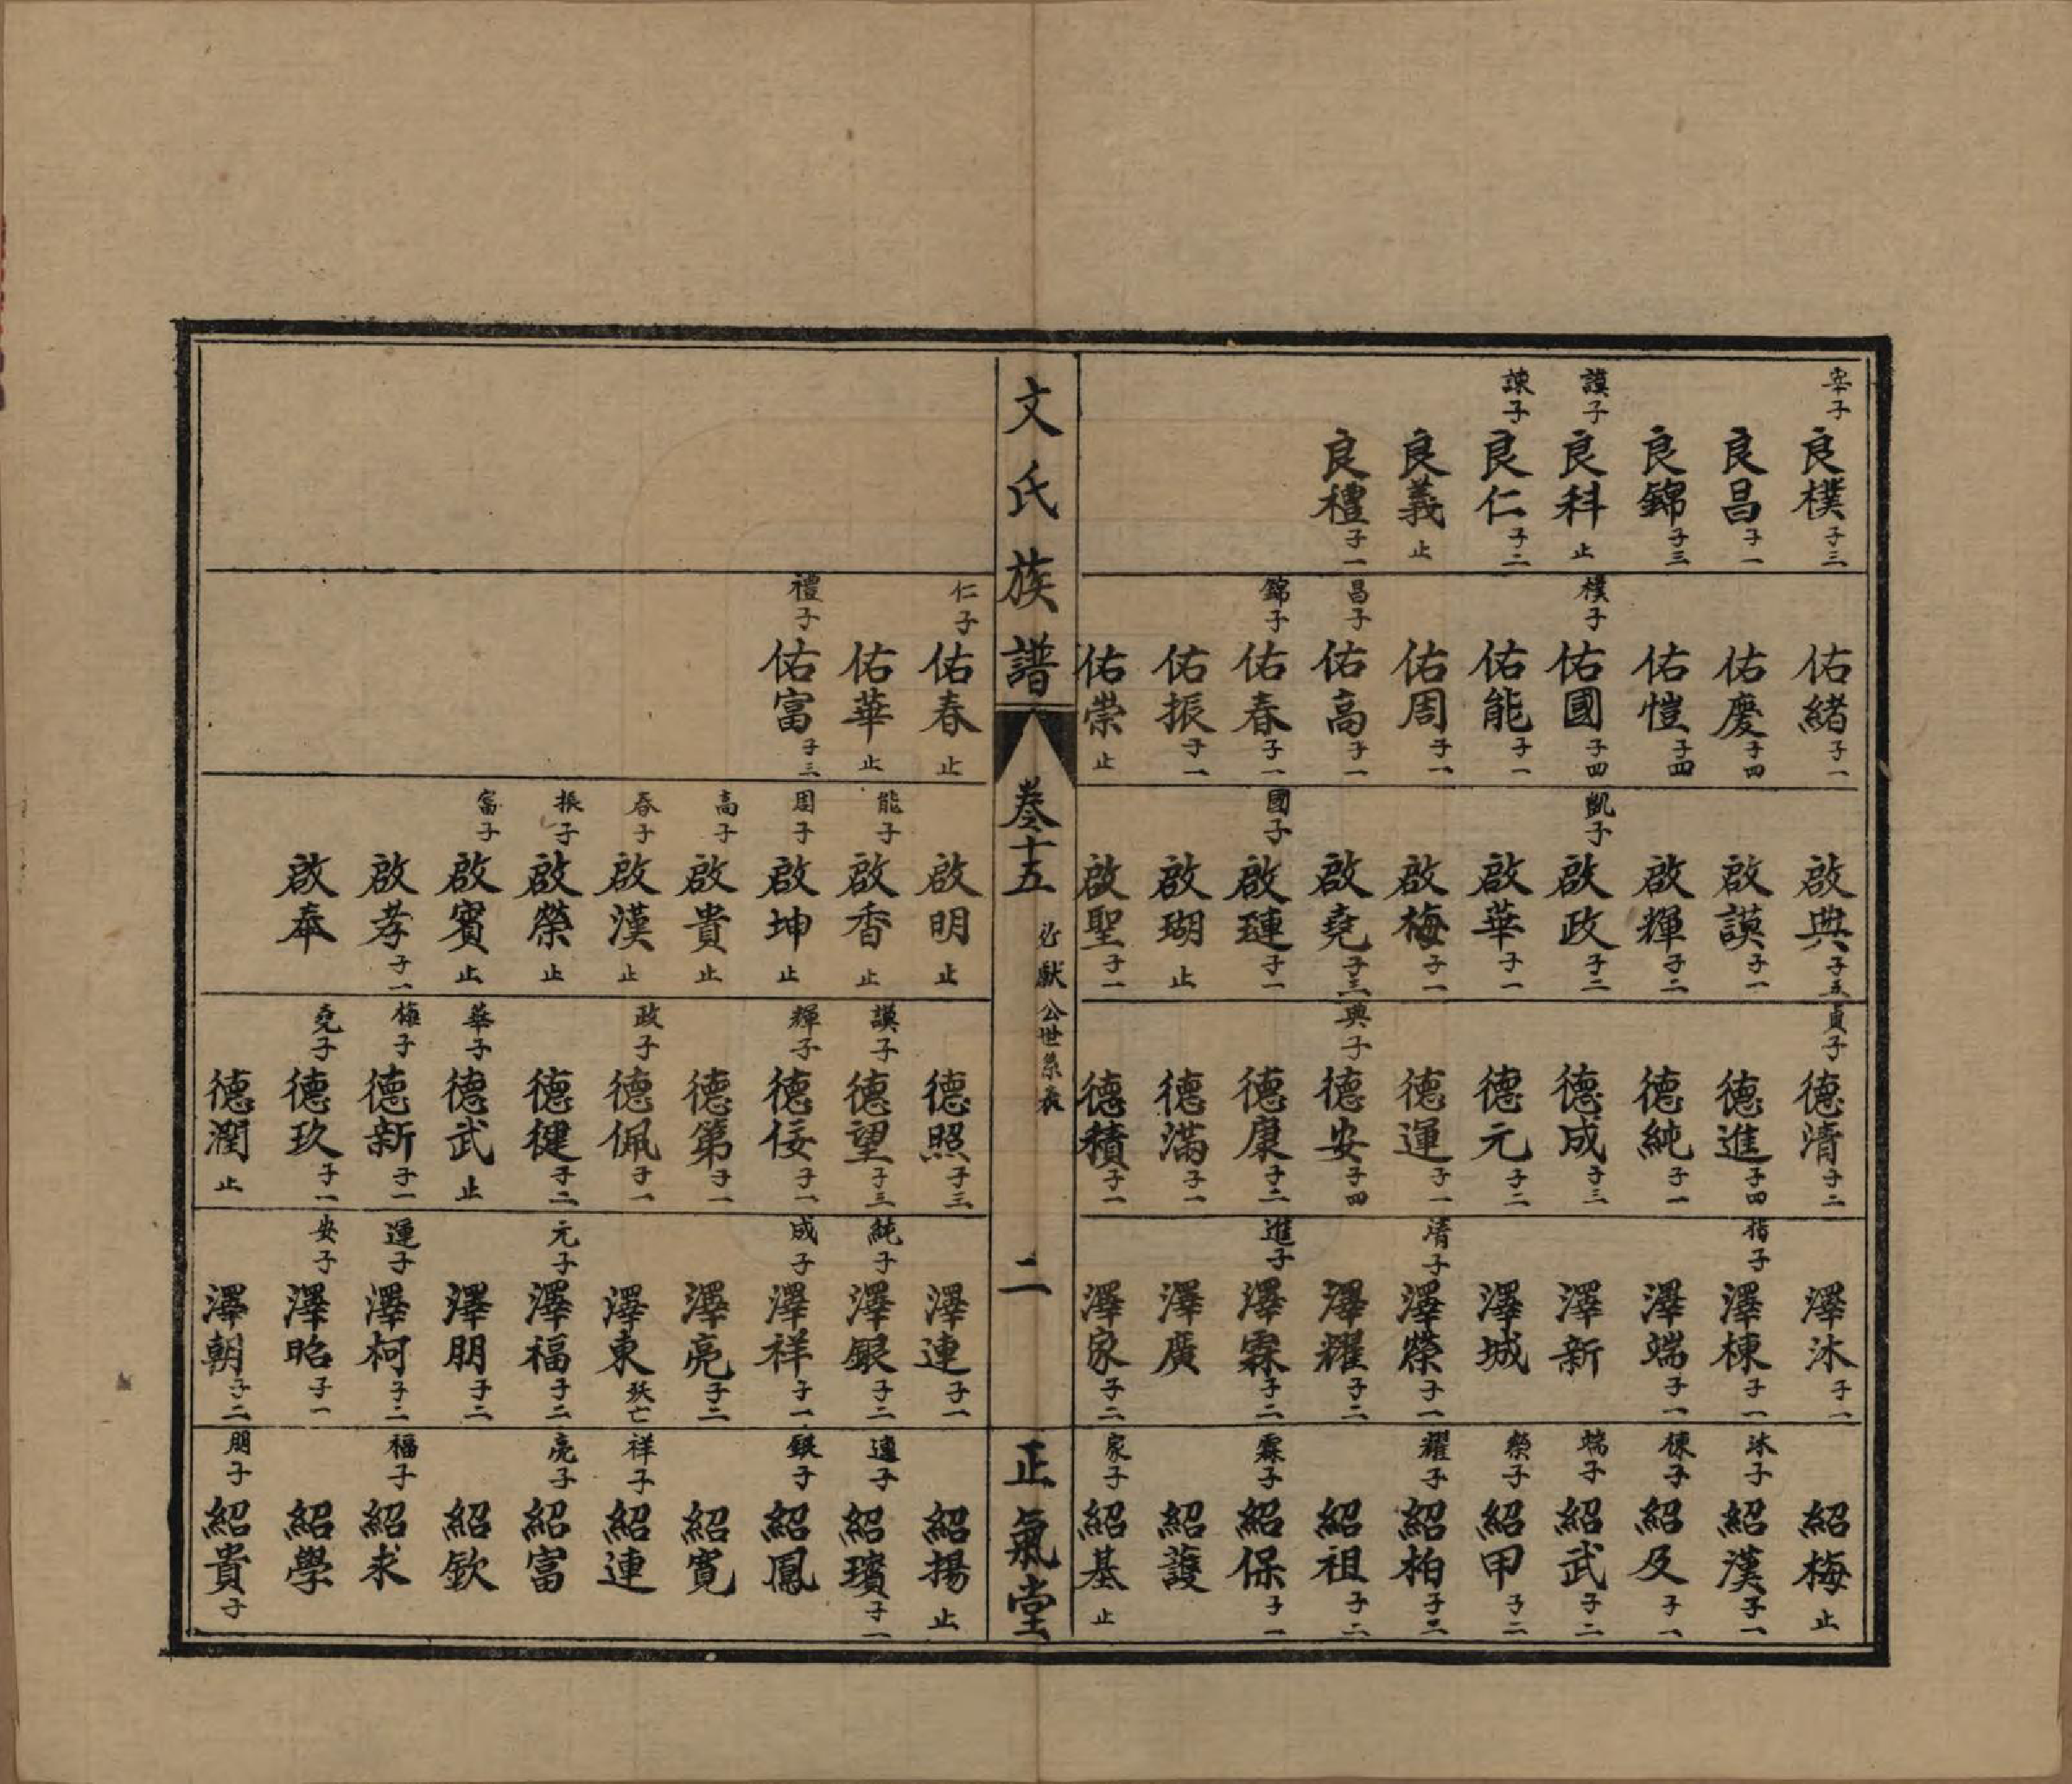 宰子 良樸 子三
良昌 子一
良錦 子三
謨子 良科 止
諫子 良仁 子二
良義 止
良禮 子一
佑緒 子一
佑慶 子四
佑愷 子四
樸子 佑國 子四
佑能 子一
佑周 子一
昌子 佑高 子一
錦子 佑春 子一
佑振 子一
佑崇 止
啟典 子五
啟謨 子一
啟輝 子二
凱子 啟政 子二
啟華 子一
啟梅 子一
啟堯 子三
國子 啟璉 子一
啟瑚 止
啟聖 子一
貢子 德清 子二
德進 子四
德純 子一
德成 子三
德元 子二
德運 子一
典子 德安 子四
德康 子二
德滿 子一
德積 子一
澤沐 子一
子 澤棟 子一
澤端 子一
澤新
澤城
清子 澤榮 子一
澤耀 子二
進子 澤霖 子二
澤廣
澤家 子二
紹梅 止
沐子 紹漢 子一
棟子 紹及 子一
端子 紹武 子二
榮子 紹甲 子二
耀子 紹柏 子二
紹祖 子二
霖子 紹保 子一
紹護
家子 紹基 止
文氏族譜
卷十五
公世系表
二
正氣堂
仁子 佑春 止
佑華 止
禮子 佑富 子三
啟明 止
能子 啟香 止
周子 啟坤 止
高子 啟貴 止
春子 啟漢 止
振子 啟榮 止
富子 啟賓 止
啟孝 子一
啟奉
德照 子三
謨子 德望 子三
輝子 德佞 子一
德第 子一
政子 德佩 子一
德健 子二
華子 德武 止
梅子 德新 子一
堯子 德玖 子一
德潤 止
澤連 子一
純子 澤銀 子二
成子 澤祥 子一
澤亮 子二
澤東 妖亡
元子 澤福 子二
澤朋 子二
運子 澤柯 子二
安子 澤昭 子一
澤朝 子二
紹揚 止
連子 紹璸 子一
銀子 紹鳳
紹寬
祥子 紹連
亮子 紹富
紹欽
福子 紹求
紹學
朋子 紹貴 子